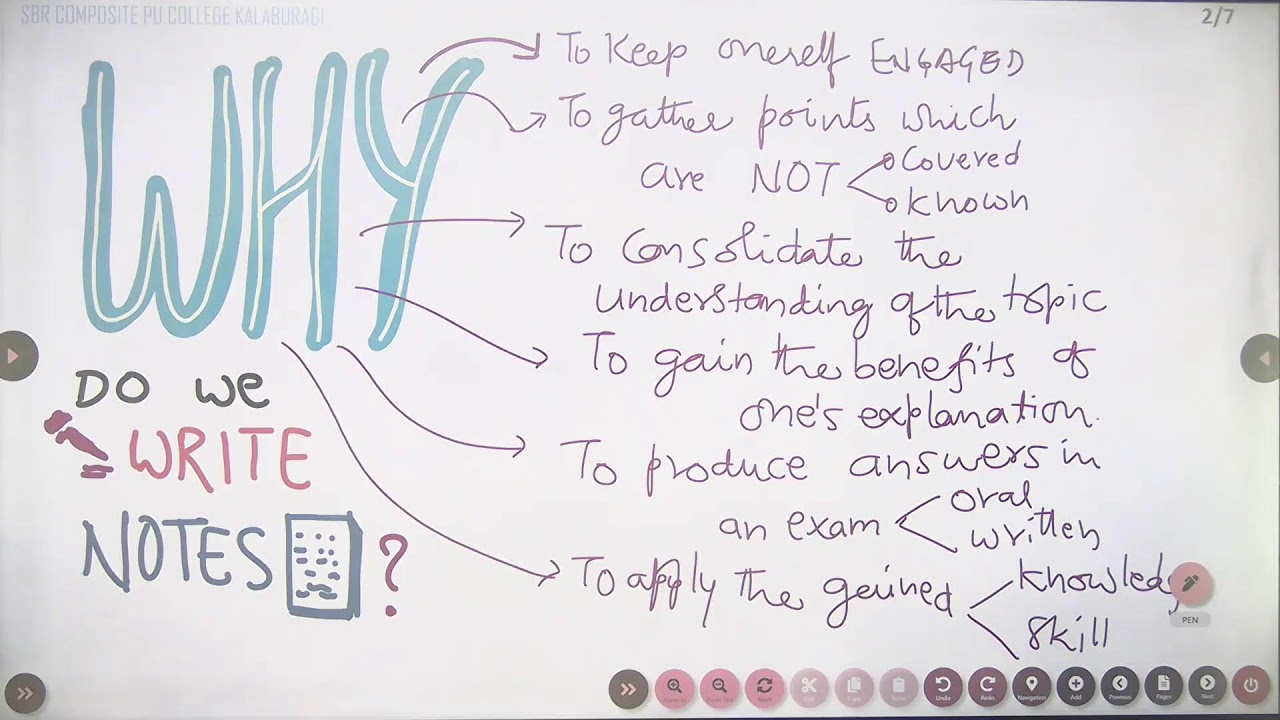 SBR COMPOSITE PU COLLEGE KALABURAGI
2/7
WHY
DO we
WRITE
NOTES ?
To Keep oneself ENGAGED
To gather points which
are NOT
Covered
Known
To Consolidate the
understanding of the topic
To gain the benefits of
one's explanation.
To produce answers in
an exam
oral
written
To apply the gained
Knowledg
Skill
PEN
Zoom In
Zoom Out
Reset
Cut
Copy
Paste
Undo
Redo
Navigation
Add
Previous
Pages
Next